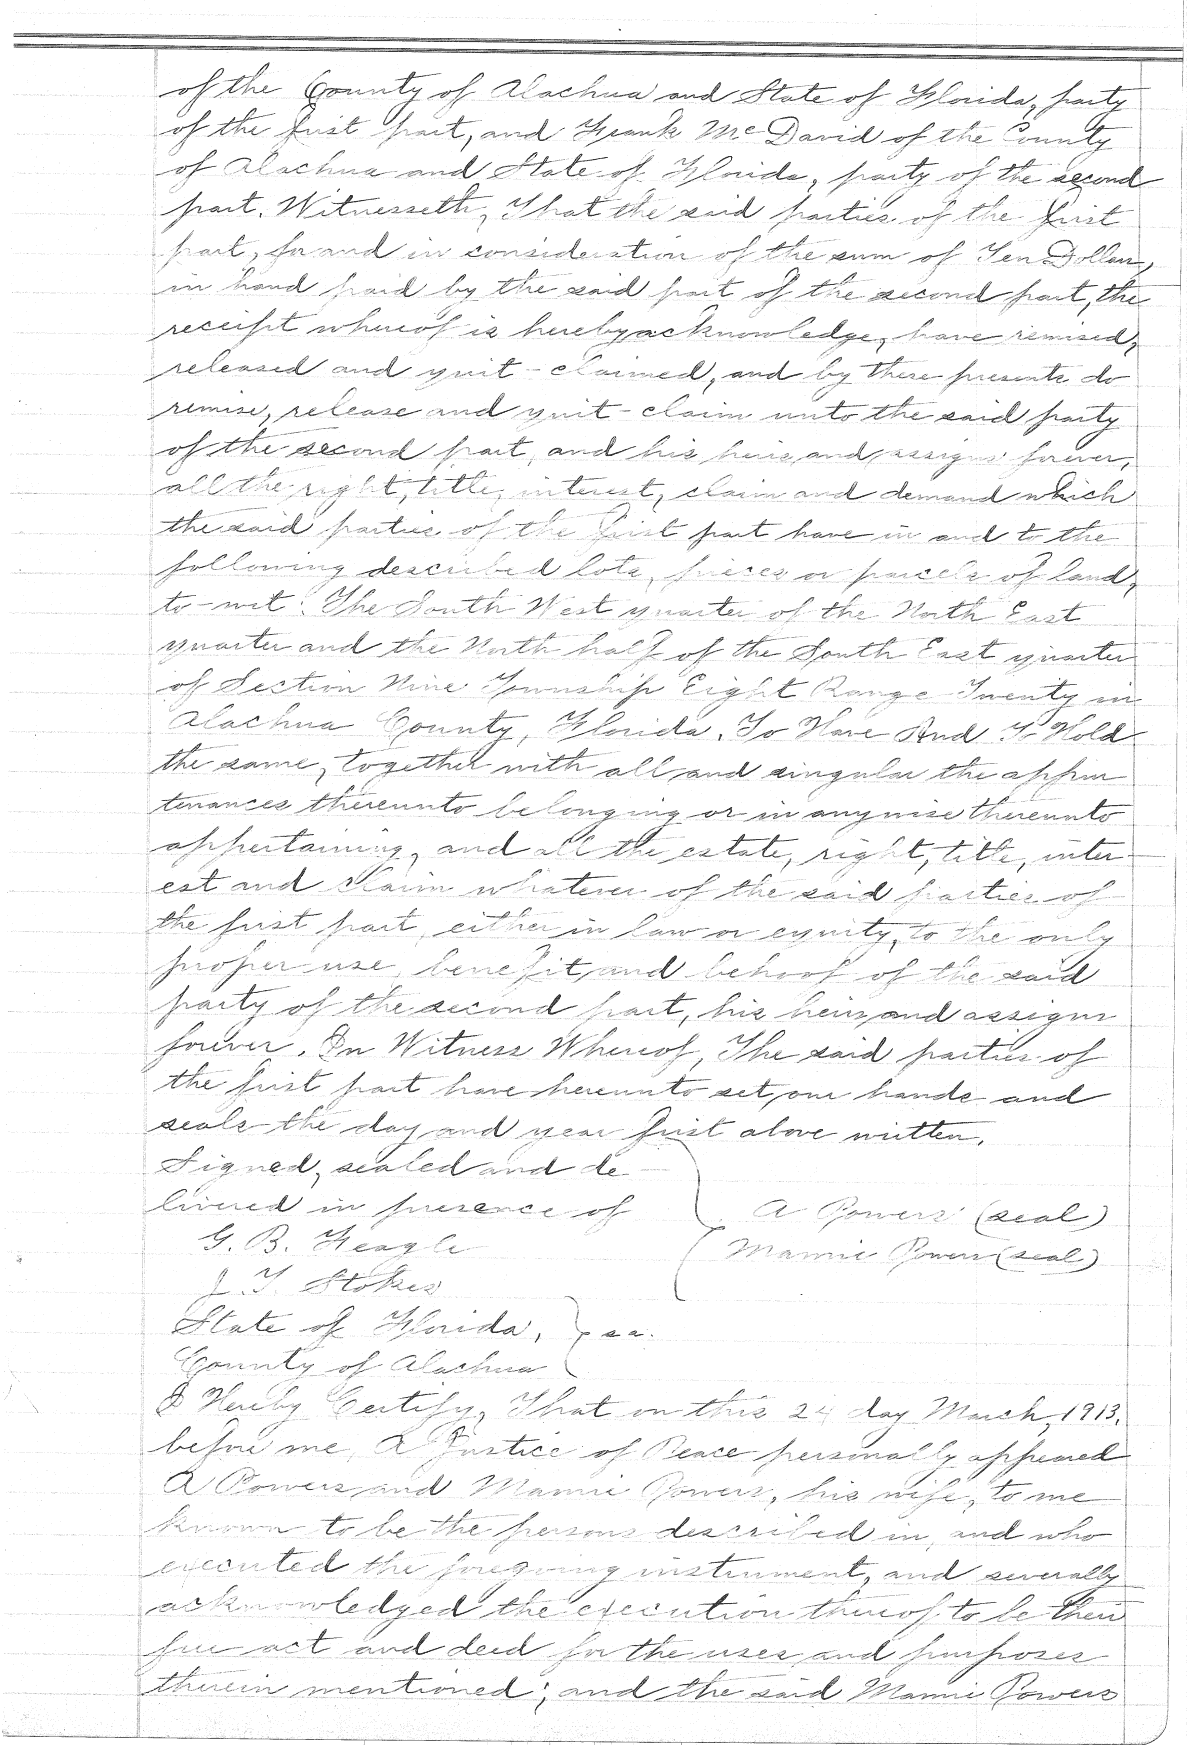 of the County of Alachua and State of Florida, party
of the first part, and Frank McDavid of the County
of Alachua and State of Florida, party of the second
part. Witnesseth, That the said parties of the first
part, for and in consideration of the sum of Ten Dollars,
in hand paid by the said part of the second part, the
receipt whereof is hereby acknowledge, have remised,
released and quit-claimed, and by these presents do
remise, release and quit-claim unto the said party
of the second part, and his heirs and assigns forever,
all the right, title, interest, claim and demand which
the said parties of the first part have in and to the
following described lots, pieces or parcels of land,
to-wit: The South West quarter of the North East
quarter and the North half of the South East quarter
of Section Nine Township Eight Range Twenty in
Alachua County, Florida. To Have And To Hold
the same, together with all and singular the appur
tenances thereunto belonging or in anywise thereunto
appertaining, and all the estate, right, title, inter-
est and claim whatever of the said parties of
the first part, either in law or equity, to the only
proper use, benefit and behoof of the said
party of the second part, his heirs and assigns
forever. In Witness Whereof, The said parties of
the first part have hereunto set our hands and
seals the day and year first above written.
Signed, sealed and de
livered in presence of
A Powers (seal)
G. B. Feagle
Mannie Powers (seal)
J. T. Stokes
State of Florida, } ss.
County of Alachua
I Hereby Certify, That on this 24 day March, 1913.
before me, A Justice of Peace personally appeared
A Powers and Mannie Powers, his wife, to me
known to be the persons described in, and who
executed the foregoing instrument, and severally
acknowledged the execution thereof to be their
free act and deed for the uses and purposes
therein mentioned; and the said Mannie Powers